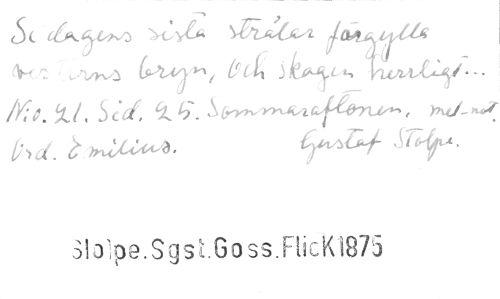 Se dagens sista strålar förgylla
vesterns bryn, och skogen herrligt...
No. 21. Sid. 25. Sommaraftonen. mel-not.
Ord. Emilius. Gustaf Stolpe.
Stolpe.Sgst.Goss.Flick1875